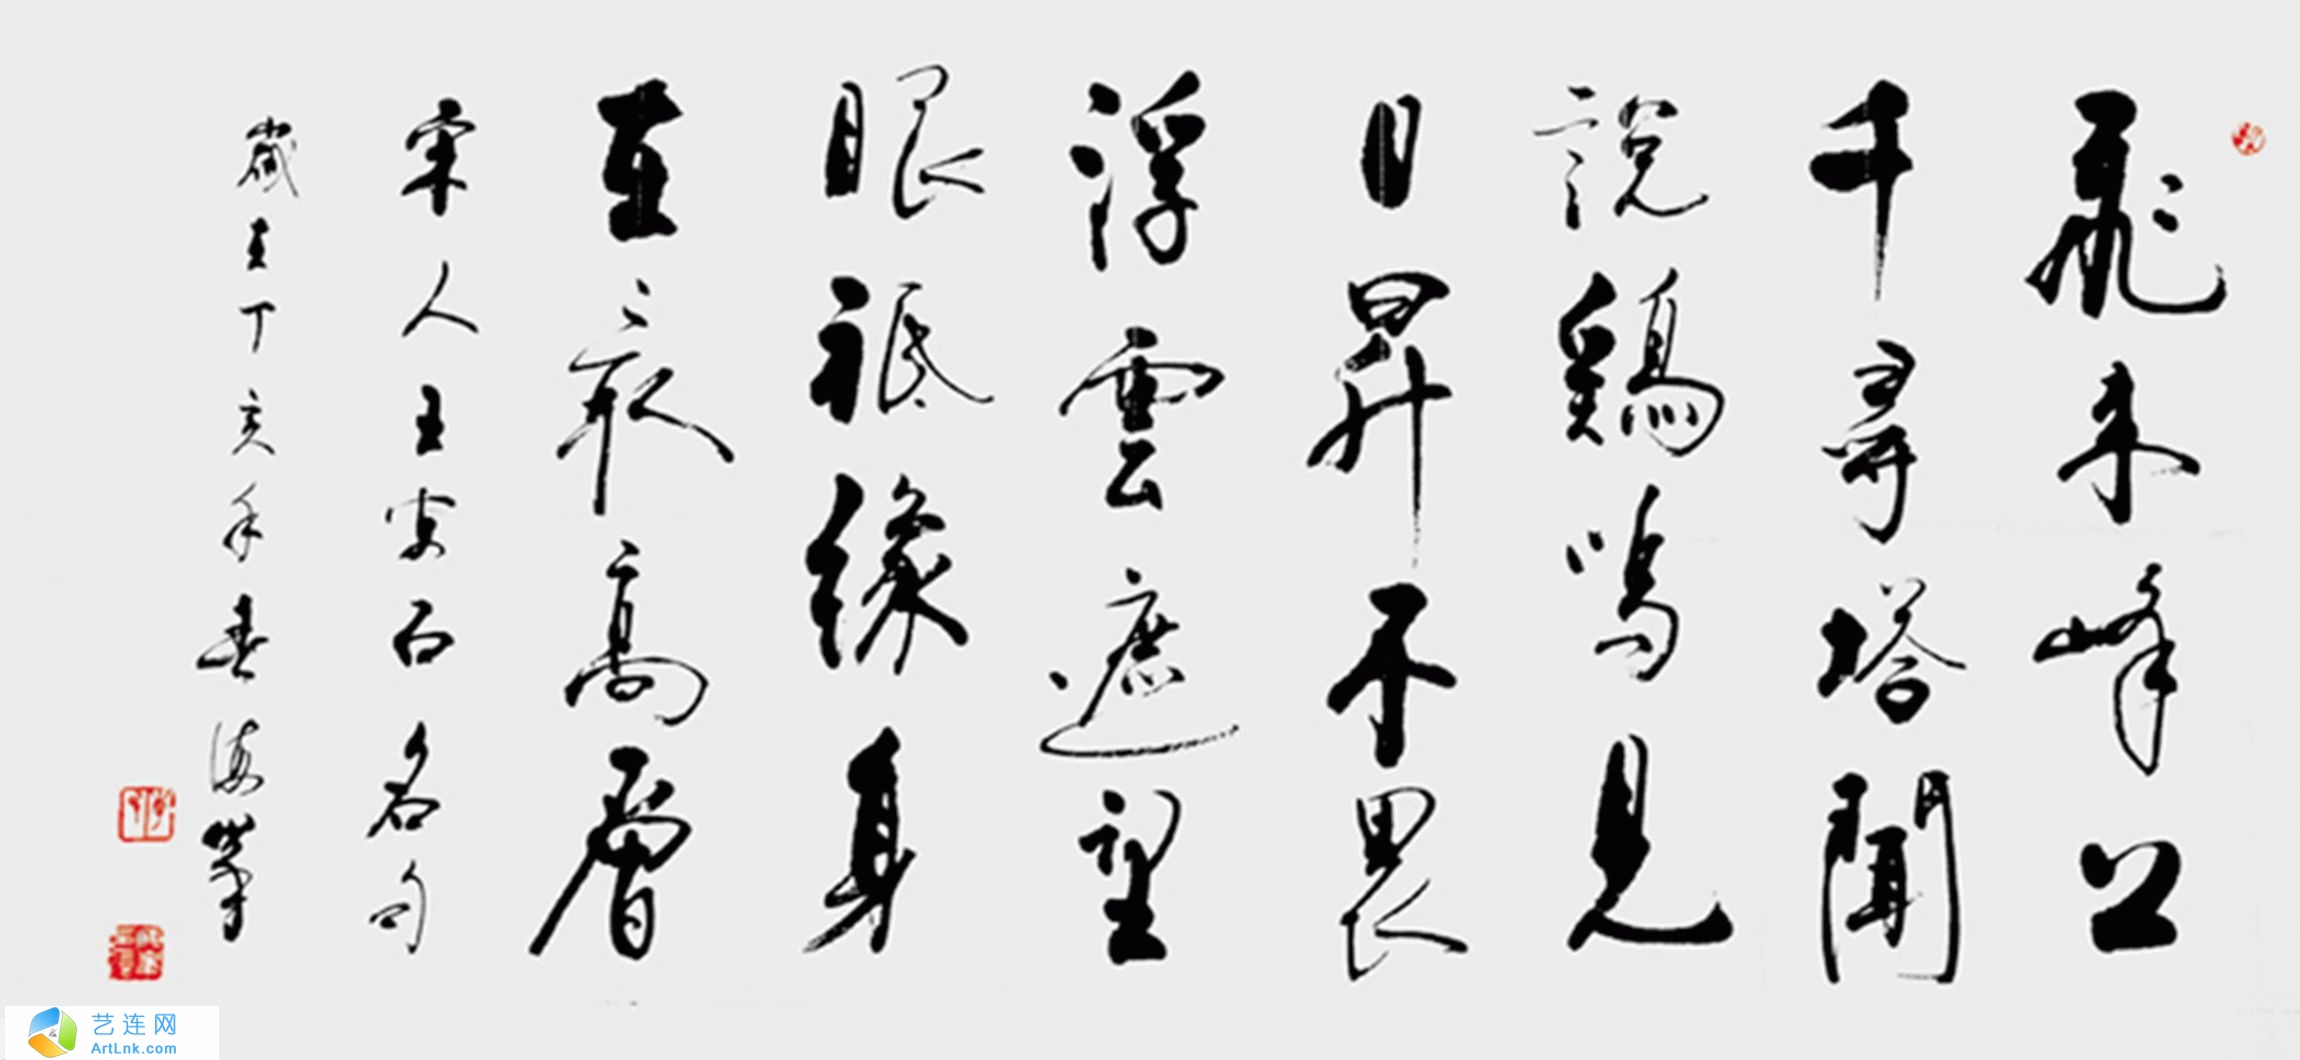 飛来峰上
千尋塔聞
說鷄鳴見
日昇不畏
浮雲遮望
眼祗緣身
在最高層
宋人王安石名句
歲在丁亥年春海
艺连网
ArtLnk.com